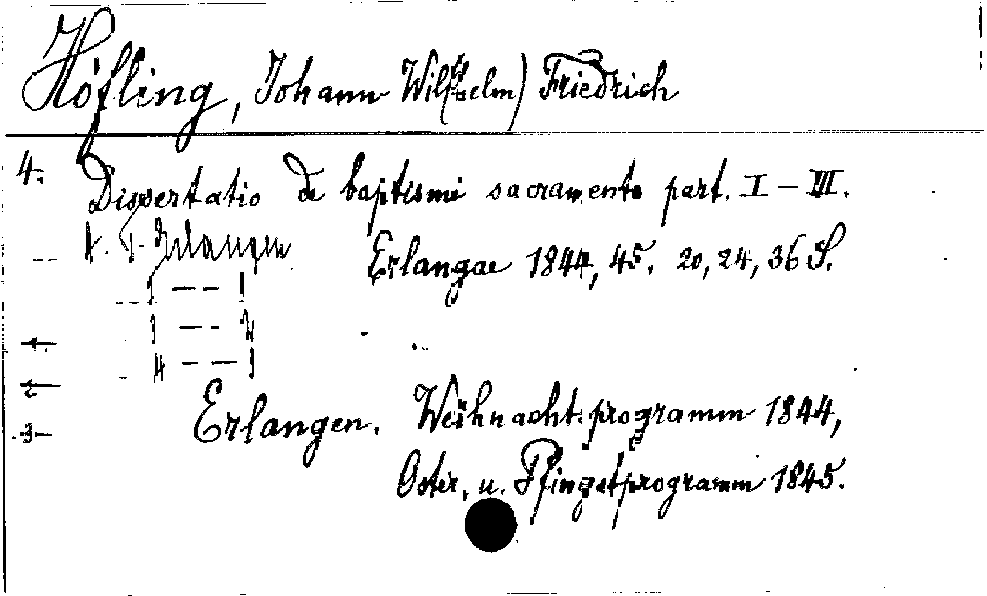 Höfling, Johann Wilh(elm) Friedrich
4. Dissertatio de baptismi sacramento part. I – III.
Erlangen
Erlangae 1844, 45. 20, 24, 36 S.
1
2
3
Erlangen. Weihnachtsprogramm 1844,
Oster, u. Pfingstprogramm 1845.